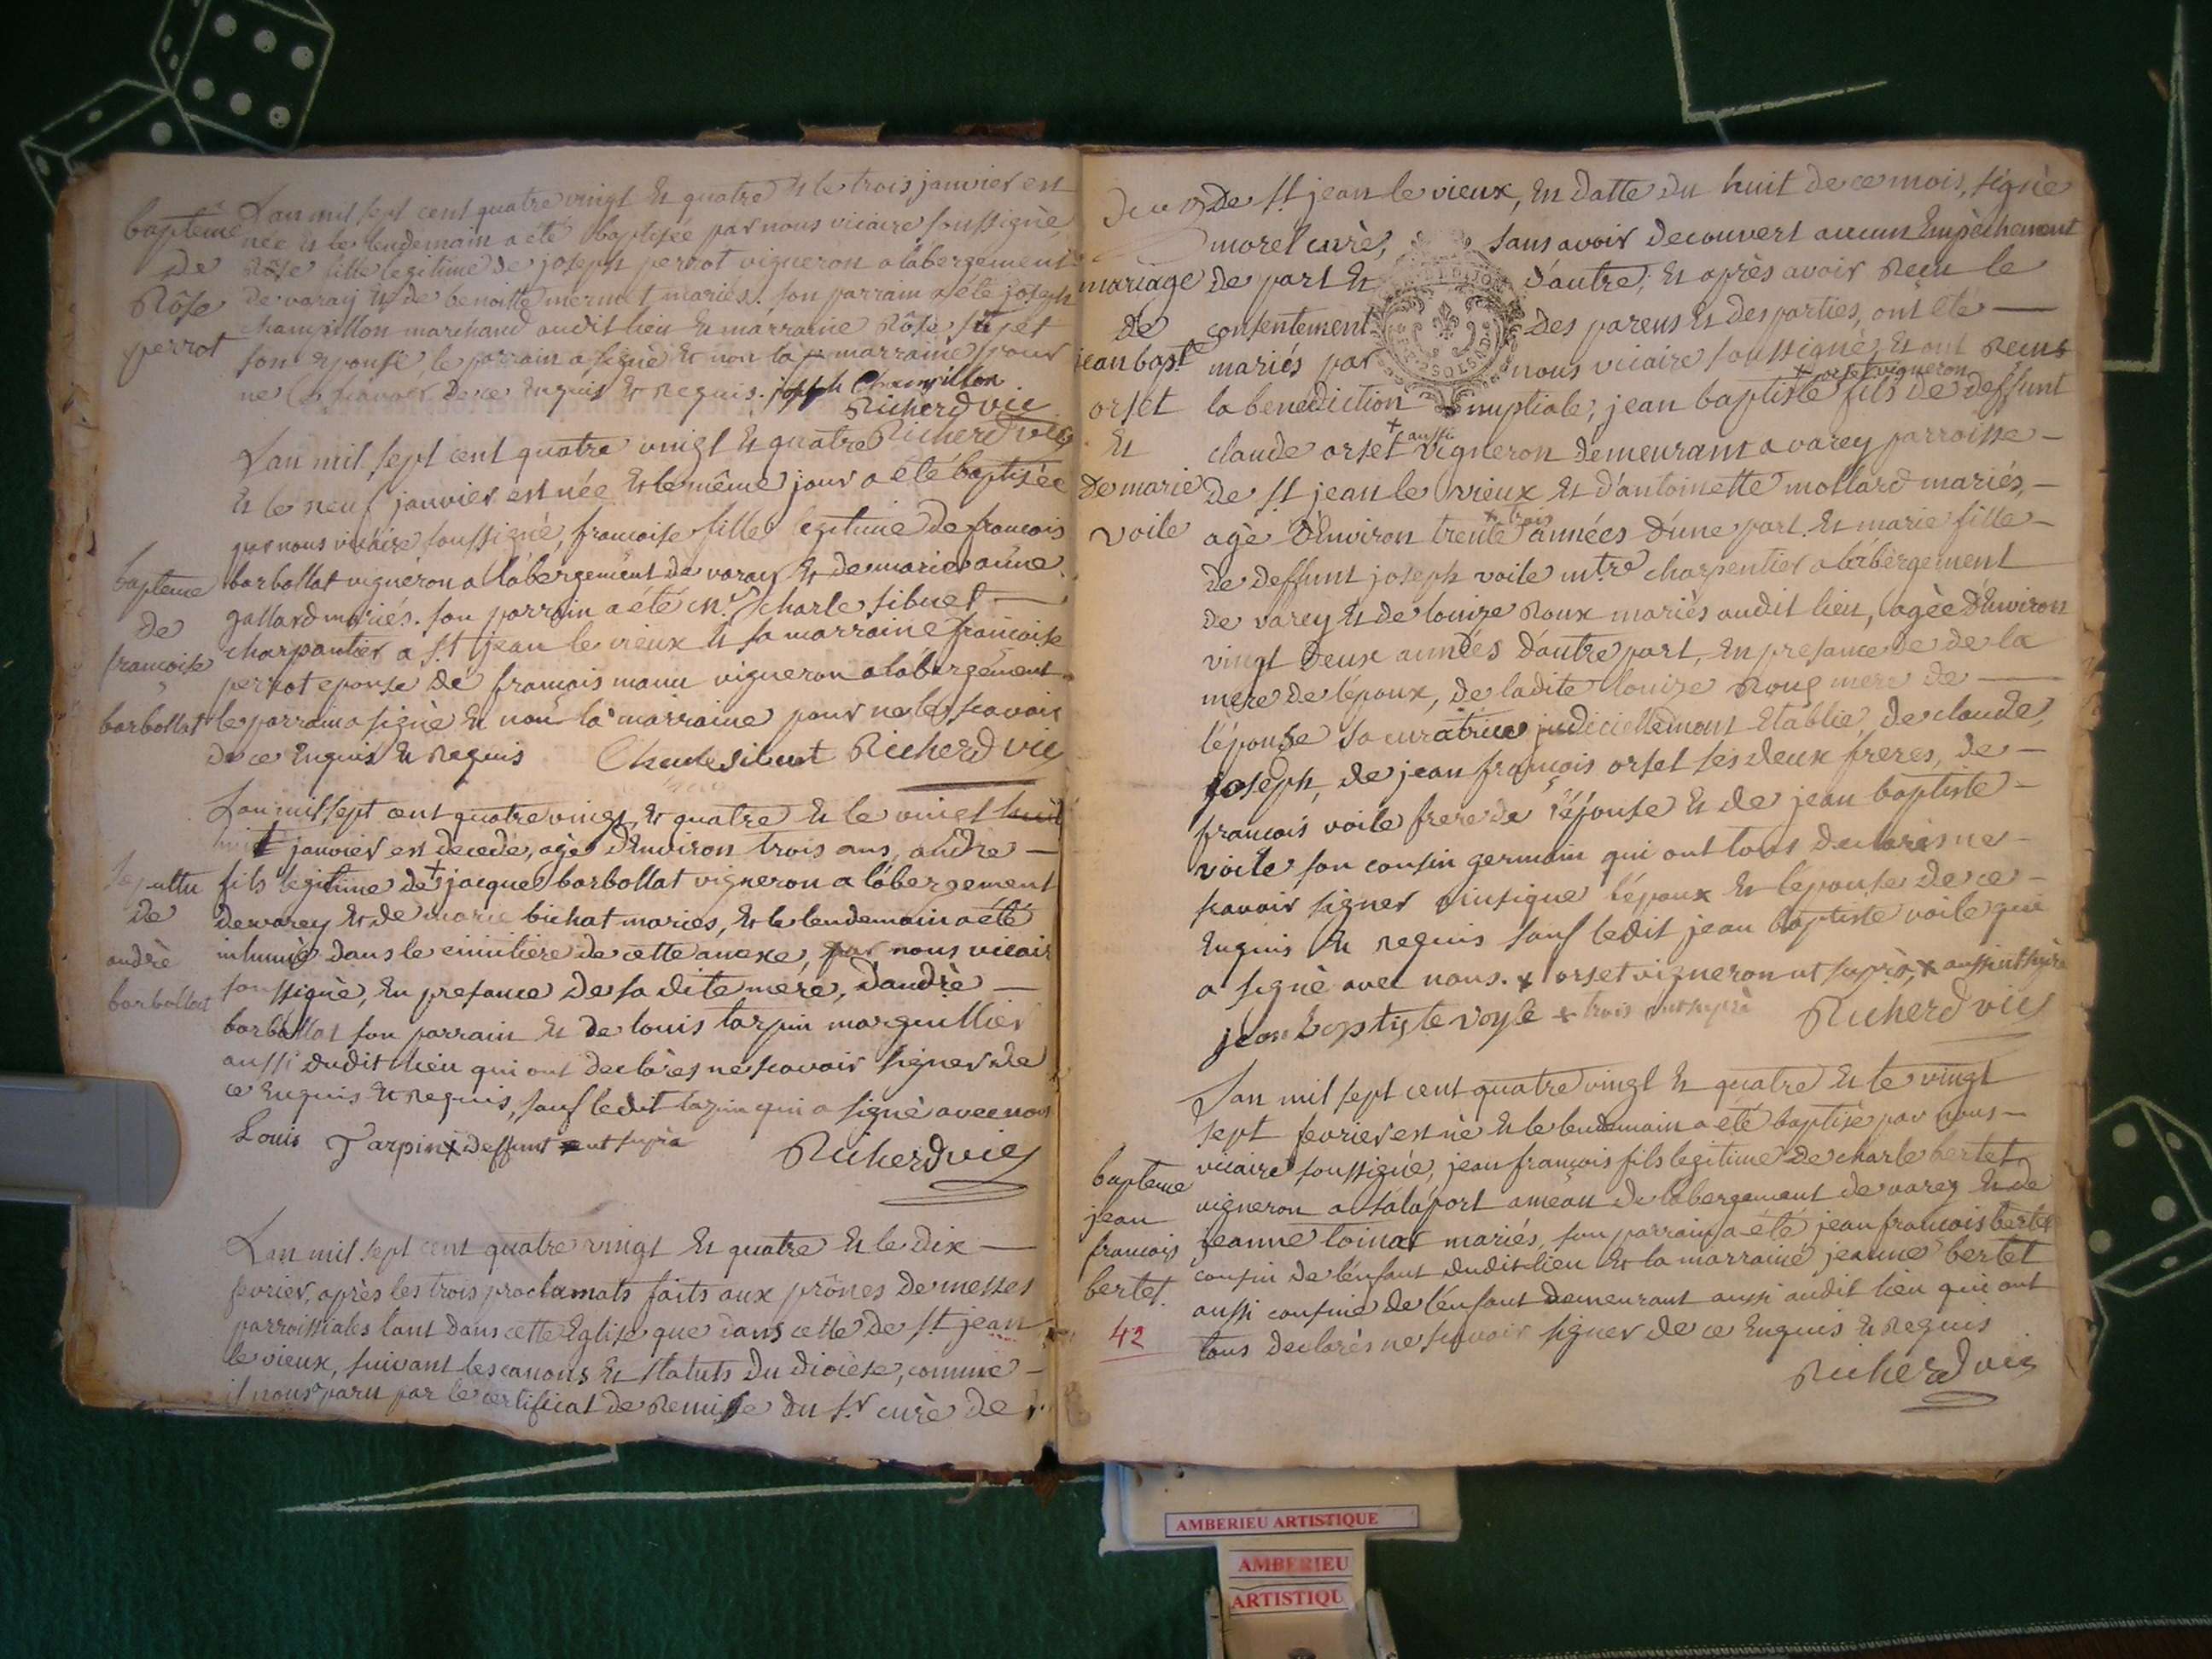 bapteme
de
Rôse
perrot
Lan mil sept cent quatre vingt Et quatre Et le trois janvier est
née Et le lendemain a été baptisée par nous vicaire soussigné,
Rôse fille legitime de joseph perrot vigneron a labergement
de varay Et de benoitte mermet mariés. son parrain a été joseph
champillon marchand audit lieu Et marraine Rôse
son epouse le parrain a signé Et non la marraine pour
ne scavoir de ce Enquis Et Requis. joseph Champillon
Richerd vic
Lan mil sept cent quatre vingt Et quatre Richerd vic
Et le neuf janvier est née Et le même jour a été baptisée
par nous vicaire soussigné, francoise fille legitime de francois
bapteme
de
francoise
barbollat
barbollat vigneron a labergement de varay Et de marie anne
gallard mariés. son parrain a été Mr. charle sibuet
charpantier a st jean le vieux Et sa marraine francoise
perrot epouse de francois manu vigneron a labergement
le parrain a signé Et non la marraine pour ne les scavoir
de ce Enquis Et Requis Charle sibuet Richerd vic
Lan mil sept cent quatre vingt Et quatre Et le vingt huit
janvier est decedé, agé d'Environ trois ans, andre
sepultu
de
andrè
barbollat
fils legitime de + jacque barbollat vigneron a labergement
de varey Et de marie bichat mariés, Et le lendemain a été
inhumé dans le cimitiere de cette anexe, par nous vicair
soussigné, En presance de sa dite mere, d'andrè
barbollat son parrain Et de louis tarpin marguillier
aussi dudit lieu qui ont declarés ne scavoir signer de
ce Enquis Et Requis, sauf ledit tarpin qui a signé avec nous
Louis Tarpin x deffunt ut suprà Richerd vic
Lan mil sept cent quatre vingt Et quatre Et le dix
fevrier, après les trois proclamats faits aux prônes de messes
parroissiales tant dans cette Eglise que dans celle de st. jean
le vieux, suivant les canons Et statuts du diocèse, comme
il nous a paru par le certificat de Remisse du sr. curé de
de st. jean le vieux, En datte du huit de ce mois, signè
morel curè, sans avoir decouvert aucun Empêchement
mariage
de
jean bapt
orset
Et
de marie
voile
de part Et d'autre; Et après avoir Recu le
consentement des parens Et des parties, ont été
mariés par nous vicaire soussigné, Et ont Recus
+ orset vigneron
la benediction nuptiale; jean baptiste fils de deffunt
+ aussi
claude orset vigneron demeurant a varey parroisse
de st jean le vieux Et d'antoinette mollard mariés,
+ trois
agé d'Environ trente années d'une part. Et marie fille
de deffunt joseph voile mtre charpentier a labergement
de varey Et de louize Roux mariés audit lieu, agée d'Environ
vingt deux années d'autre part, En presance de la
mere de l'époux, de ladite louize Roux mere de
l'épouse sa curatrice judiciellement Etablie, de claude,
joseph, de jean françois orset ses deux freres, de
francois voile frere de l'épouse Et de jean baptiste
voile son cousin germain qui ont tous declarés ne
scavoir signer insigue l'époux Et l'épouse de ce
Enquis Et Requis sauf ledit jean baptiste voile qui
a signé avec nous. x orset vigneron ut suprà, x aussi ut suprà
jean baptiste voyle x trois ut suprà Richerd vic
Lan mil sept cent quatre vingt Et quatre Et le vingt
sept fevrier est né Et le lendemain a été baptisé par nous
bapteme
jean
francois
bertet.
42
vicaire soussigné, jean françois fils legitime de charle bertet
vigneron a salaport ameau de labergement de varey Et de
jeanne loinat mariés, son parrain a été jean francois bertet
cousin de l'enfant dudit lieu Et la marraine jeanne bertet
aussi cousine de l'enfant demeurant aussi audit lieu qui ont
tous declarés ne scavoir signer de ce Enquis Et Requis
Richerd vic
AMBERIEU ARTISTIQUE
AMBERIEU
ARTISTIQU